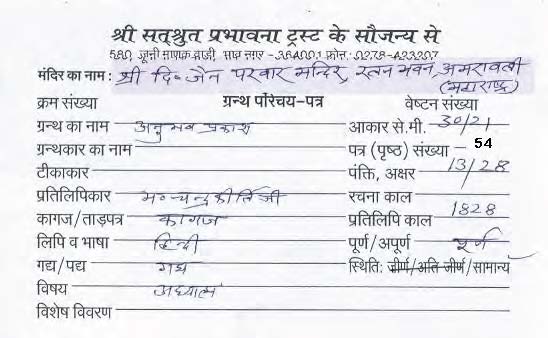 श्री सत्श्रुत प्रभावना ट्रस्ट के सौजन्य से
580, जूनी माणेक वाडी, भाव नगर - 364001 फोन : 0278-423207
मंदिर का नाम : श्री दि० जैन परवार मन्दिर, रतन भवन, अमरावती
(महाराष्ट्र)
क्रम संख्या ग्रन्थ परिचय-पत्र वेष्टन संख्या
ग्रन्थ का नाम अनुभव प्रकाश आकार से.मी. 30/21
ग्रन्थकार का नाम पत्र (पृष्ठ) संख्या – 54
टीकाकार पंक्ति, अक्षर 13/28
प्रतिलिपिकार भ० चन्द्रकीर्तिजी रचना काल
कागज/ताड़पत्र कागज प्रतिलिपि काल 1828
लिपि व भाषा हिन्दी पूर्ण/अपूर्ण पूर्ण
गद्य/पद्य गद्य स्थिति: जीर्ण/अति जीर्ण/सामान्य
विषय अध्यात्म
विशेष विवरण